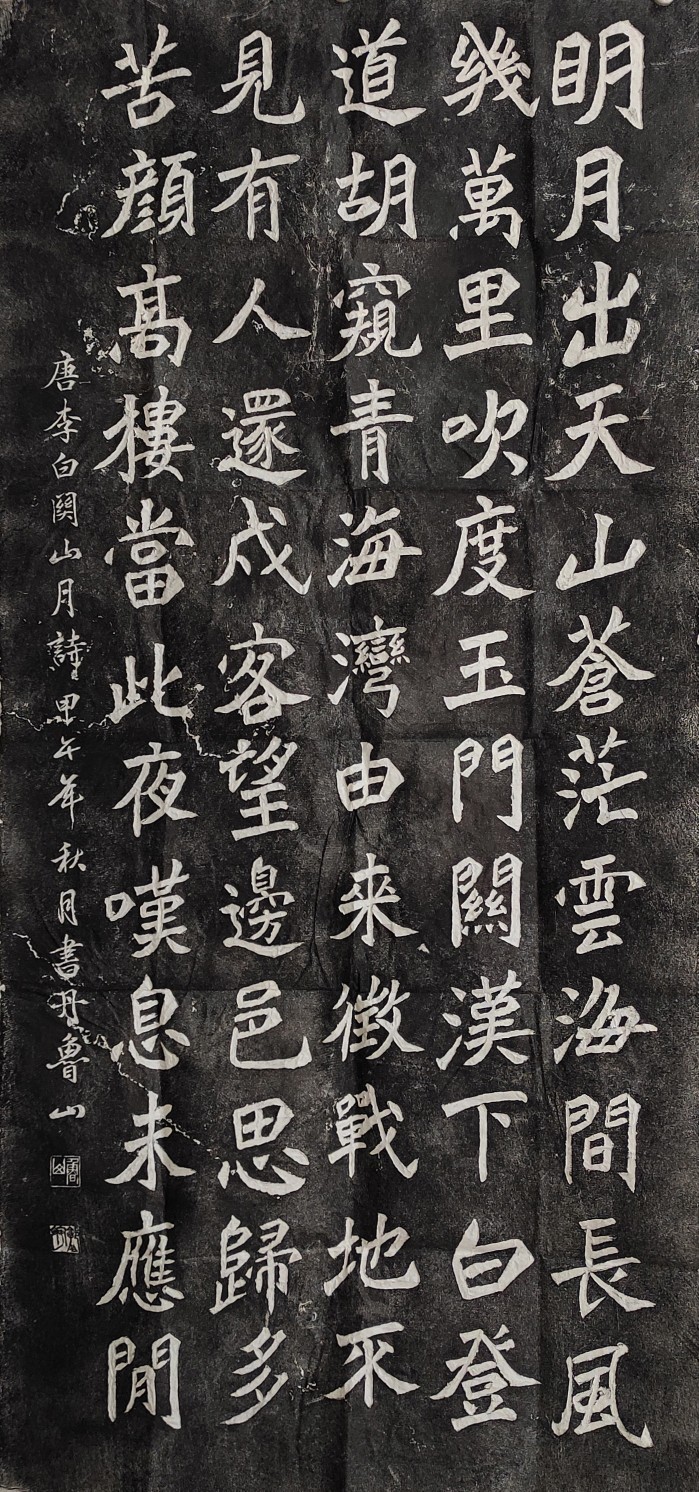 明月出天山蒼茫雲海間長風
幾萬里吹度玉門關漢下白登
道胡窺青海灣由來徵戰地不
見有人還戍客望邊邑思歸多
苦顏高樓當此夜嘆息未應閒
唐李白關山月詩甲午年秋月書丹魯山